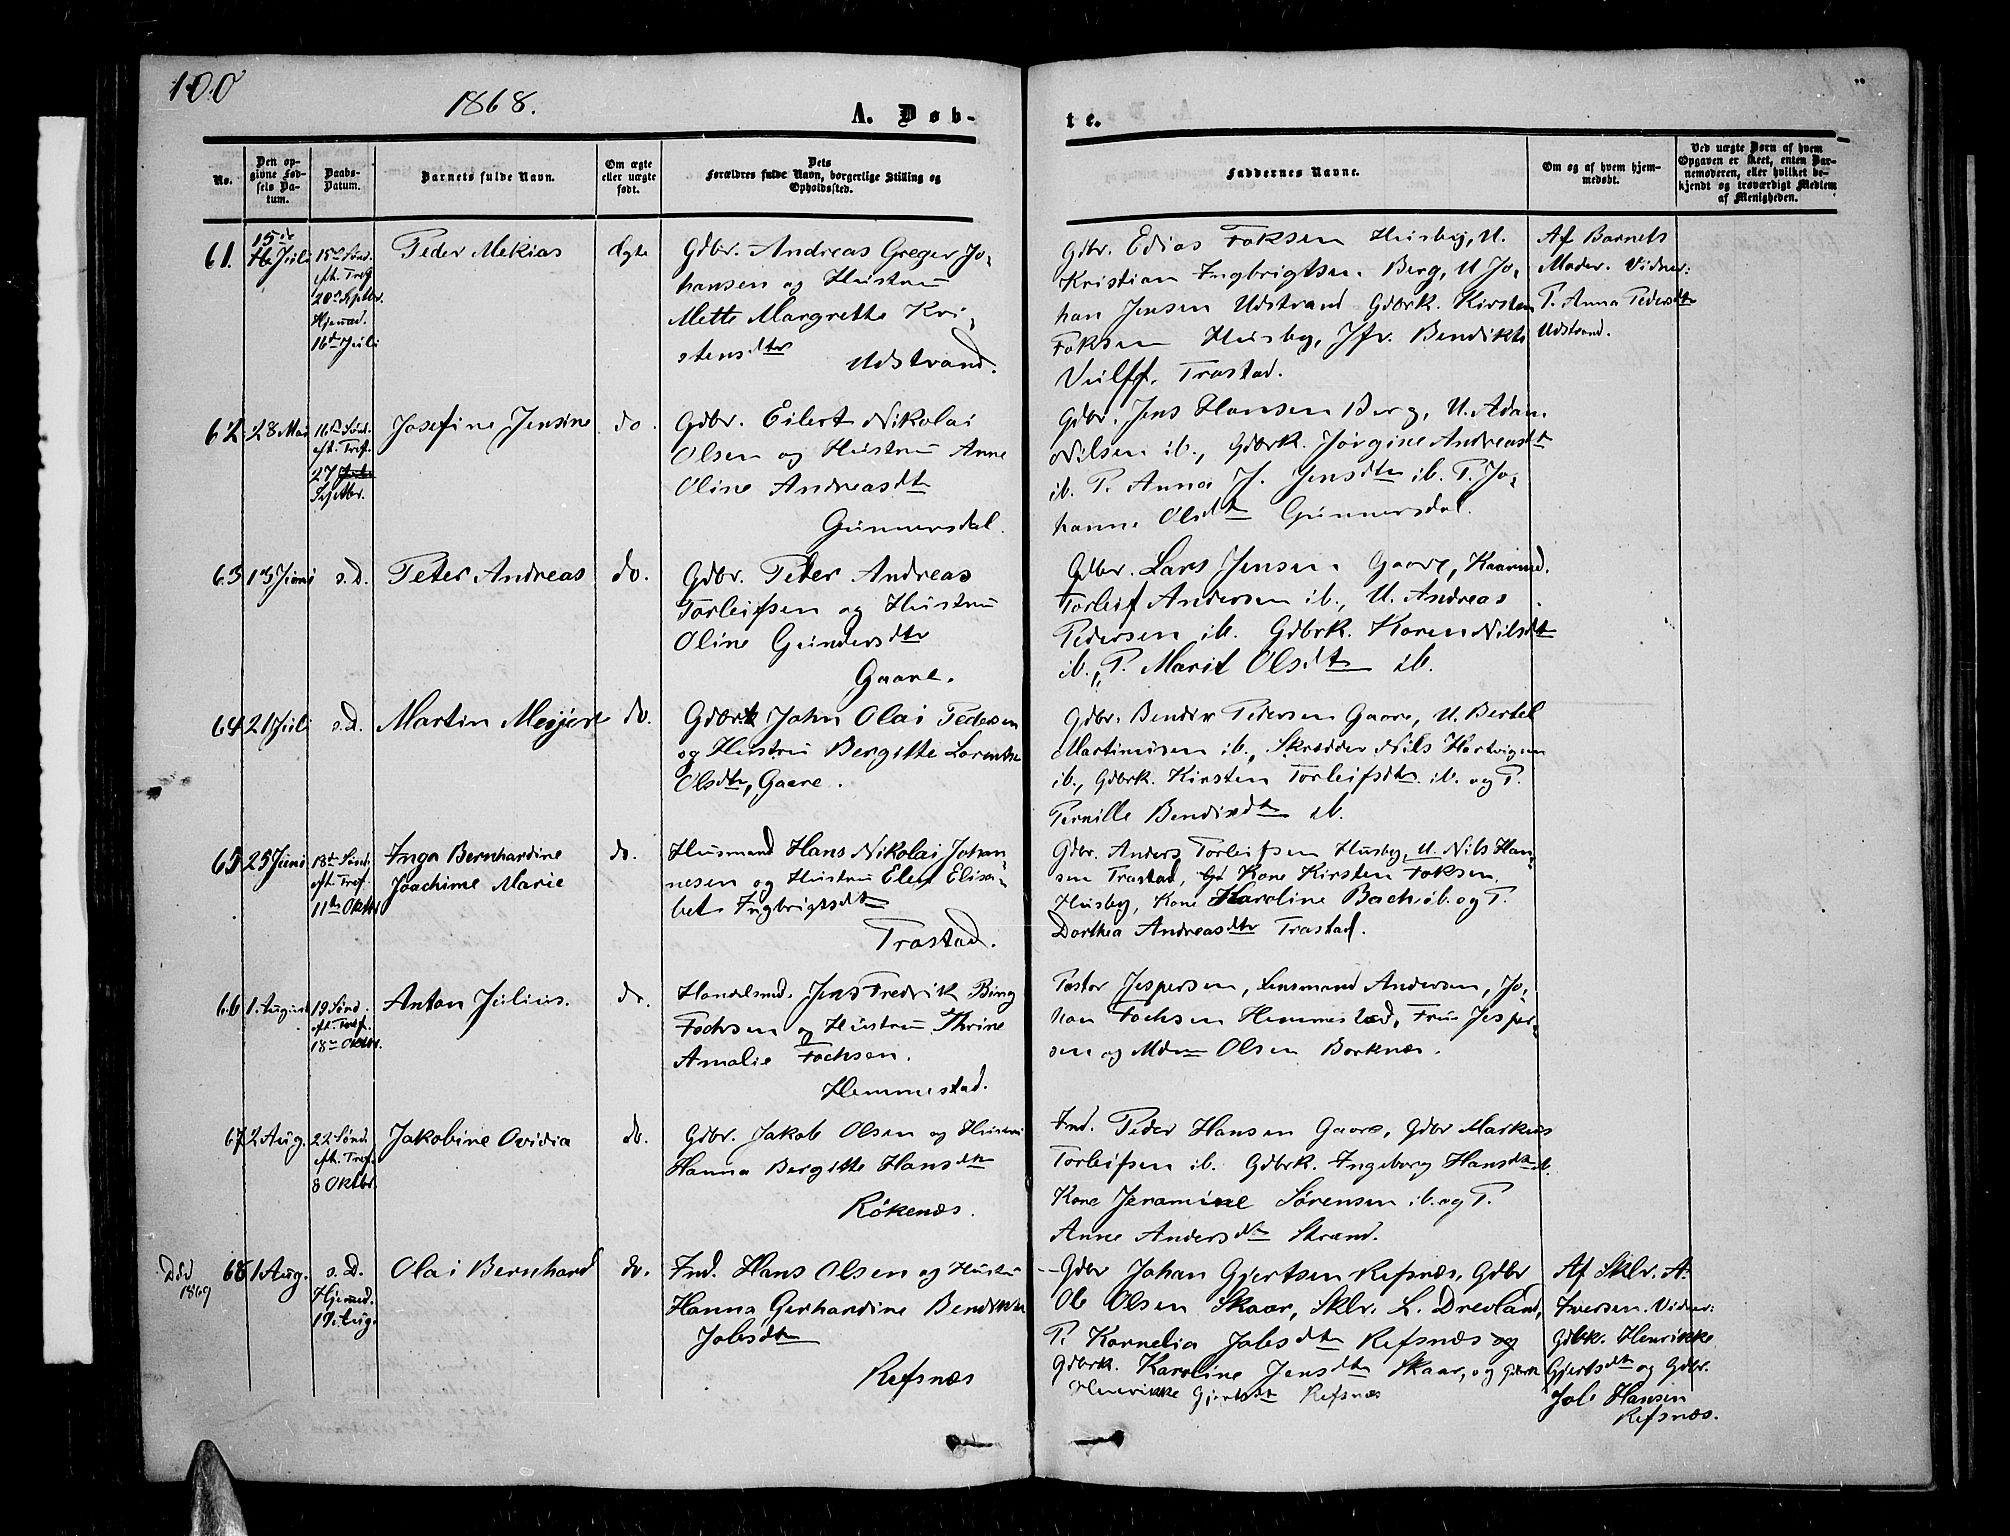 100
1868.
A. Døb-
te.
No.
Den op-
givne Fød-
sels Da-
tum.
Daabs-
Datum.
Barnets fulde Navn.
Om ægte
eller uægte
født.
Dets
Forældres fulde Navn, borgerlige Stilling og
Opholdssted.
Faddernes Navne.
Om og af hvem hjem-
medøbt.
Ved uægte Børn af hvem
Opgaven er skeet, enten Bar-
nemoderen, eller hvilket be-
kjendt og troværdigt Medlem
af Menigheden.
61.
15de
Juli
15de Sønd.
eft. Tref.
20de Septbr.
Hjemmed.
16de Juli
Peder Mekias
Ægte
Gdbr. Andreas Greger Jo-
hansen og Hustru
Mette Margrethe Kri-
stensdtr
Udstrand.
Gdbr. Edias Foksen Husby, U.
Kristian Ingbrigtsen Berg, U. Jo-
han Jensen Udstrand Gdbrk. Kirsten
Foksen Husby, Jfr. Bendikte
Vulff. Trastad.
Af Barnets
Moder. Vidner:
P. Anna Pedersdtr
Udstrand.
62.
28 Mai
16de Sønd.
eft. Tref.
27
Septbr.
Josefine Jensine
do.
Gdbr. Eilert Nikolai
Olsen og Hustru Anne
Oline Andreasdtr
Gunnersdal.
Gdbr. Jens Hansen Berg, U. Adan
Nilsen ib., Gdbrk. Jørgine Andreasdtr
ib. P. Anna J. Jensdtr ib. P. Jo-
hanne Olsdtr Gunnersdal.
63
13 Juni
s.D.
Peter Andreas
do.
Gdbr. Peter Andreas
Torleifsen og Hustru
Oline Gundersdtr
Gaare.
Gdbr. Lars Jensen Gaare, Kaarmd.
Torleif Andersen ib., U. Andreas
Pedersen ib. Gdbrk. Karen Nilsdtr
ib., P. Marit Olsdtr ib.
64
21 Juli
s.D.
Martin Mejjert
do.
Gdbrk John Olai Pedersen
og Hustru Bergitte Lorentse
Olsdtr, Gaare.
Gdbr. Bendix Pedersen Gaare, U. Bertel
Martinusen ib., Skrædder Nils Hartvigsen
ib., Gdbrk. Kirsten Torleifsdtr ib. og P.
Pernille Bendixdtr ib.
65
25 Juni
18de Sønd.
eft. Tref.
11te Oktbr
Inga Bernhardine
Joachime Marie
do.
Husmand Hans Nikolai Johan-
nesen og Hustru Elen Elisa-
bet Ingbrigtsdtr
Trastad.
Gdbr. Anders Torleifsen Husby, U. Nils Han-
sen Trastad, Kone Kirsten Foksen
Husby, Kone Karoline Bach ib. og P.
Dorthea Andreasdtr Trastad.
66
1. August
19 Sønd.
eft. Tref.
18de Oktbr.
Anton Julius.
do.
Handelsmd. Jens Fredrik Bing
Fochsen og Hustru Thrine
Amalie Fochsen.
Hemmestad.
Pastor Jespersen, Lensmand Andersen, Jo-
han Fochsen Hemmestad, Frue Jesper-
sen og Mdm Olsen Borknæs.
67.
2 Aug.
22 Sønd.
eft. Tref.
8 Oktbr.
Jakobine Ovidia
do.
Gdbr. Jakob Olsen og Hustru
Hanna Bergitte Hansdtr
Røkenæs.
Ind. Peder Hansen Gaare, Gdbr Markus
Torleifsen ib. Gdbrk. Ingeborg Hansdtr ib.
Kone Jeramine Sørensen ib. og P.
Anne Andersdtr Strand.
Død
1869
68
1 Aug.
s.D.
Hjemmed.
17. Aug.
Olai Bernhard
do.
Ind. Hans Olsen og Hustru
Hanna Gerhardine Bendikte
Jobsdtr
Refsnæs
Gdbr Johan Gjertsen Refsnæs, Gdbr
Ole Olsen Skaar, Sklr. L. Drevland,
P. Kornelia Jobsdtr Refsnæs og
Gdbrk. Karoline Jensdtr Skaar, og Gdbrk
Henrikke Gjertsdtr Refsnæs
Af Sklr. A.
Iversen. Vidner:
Gdbk. Henrikke
Gjertsdtr og Gdbr.
Job Hansen
Refsnæs.